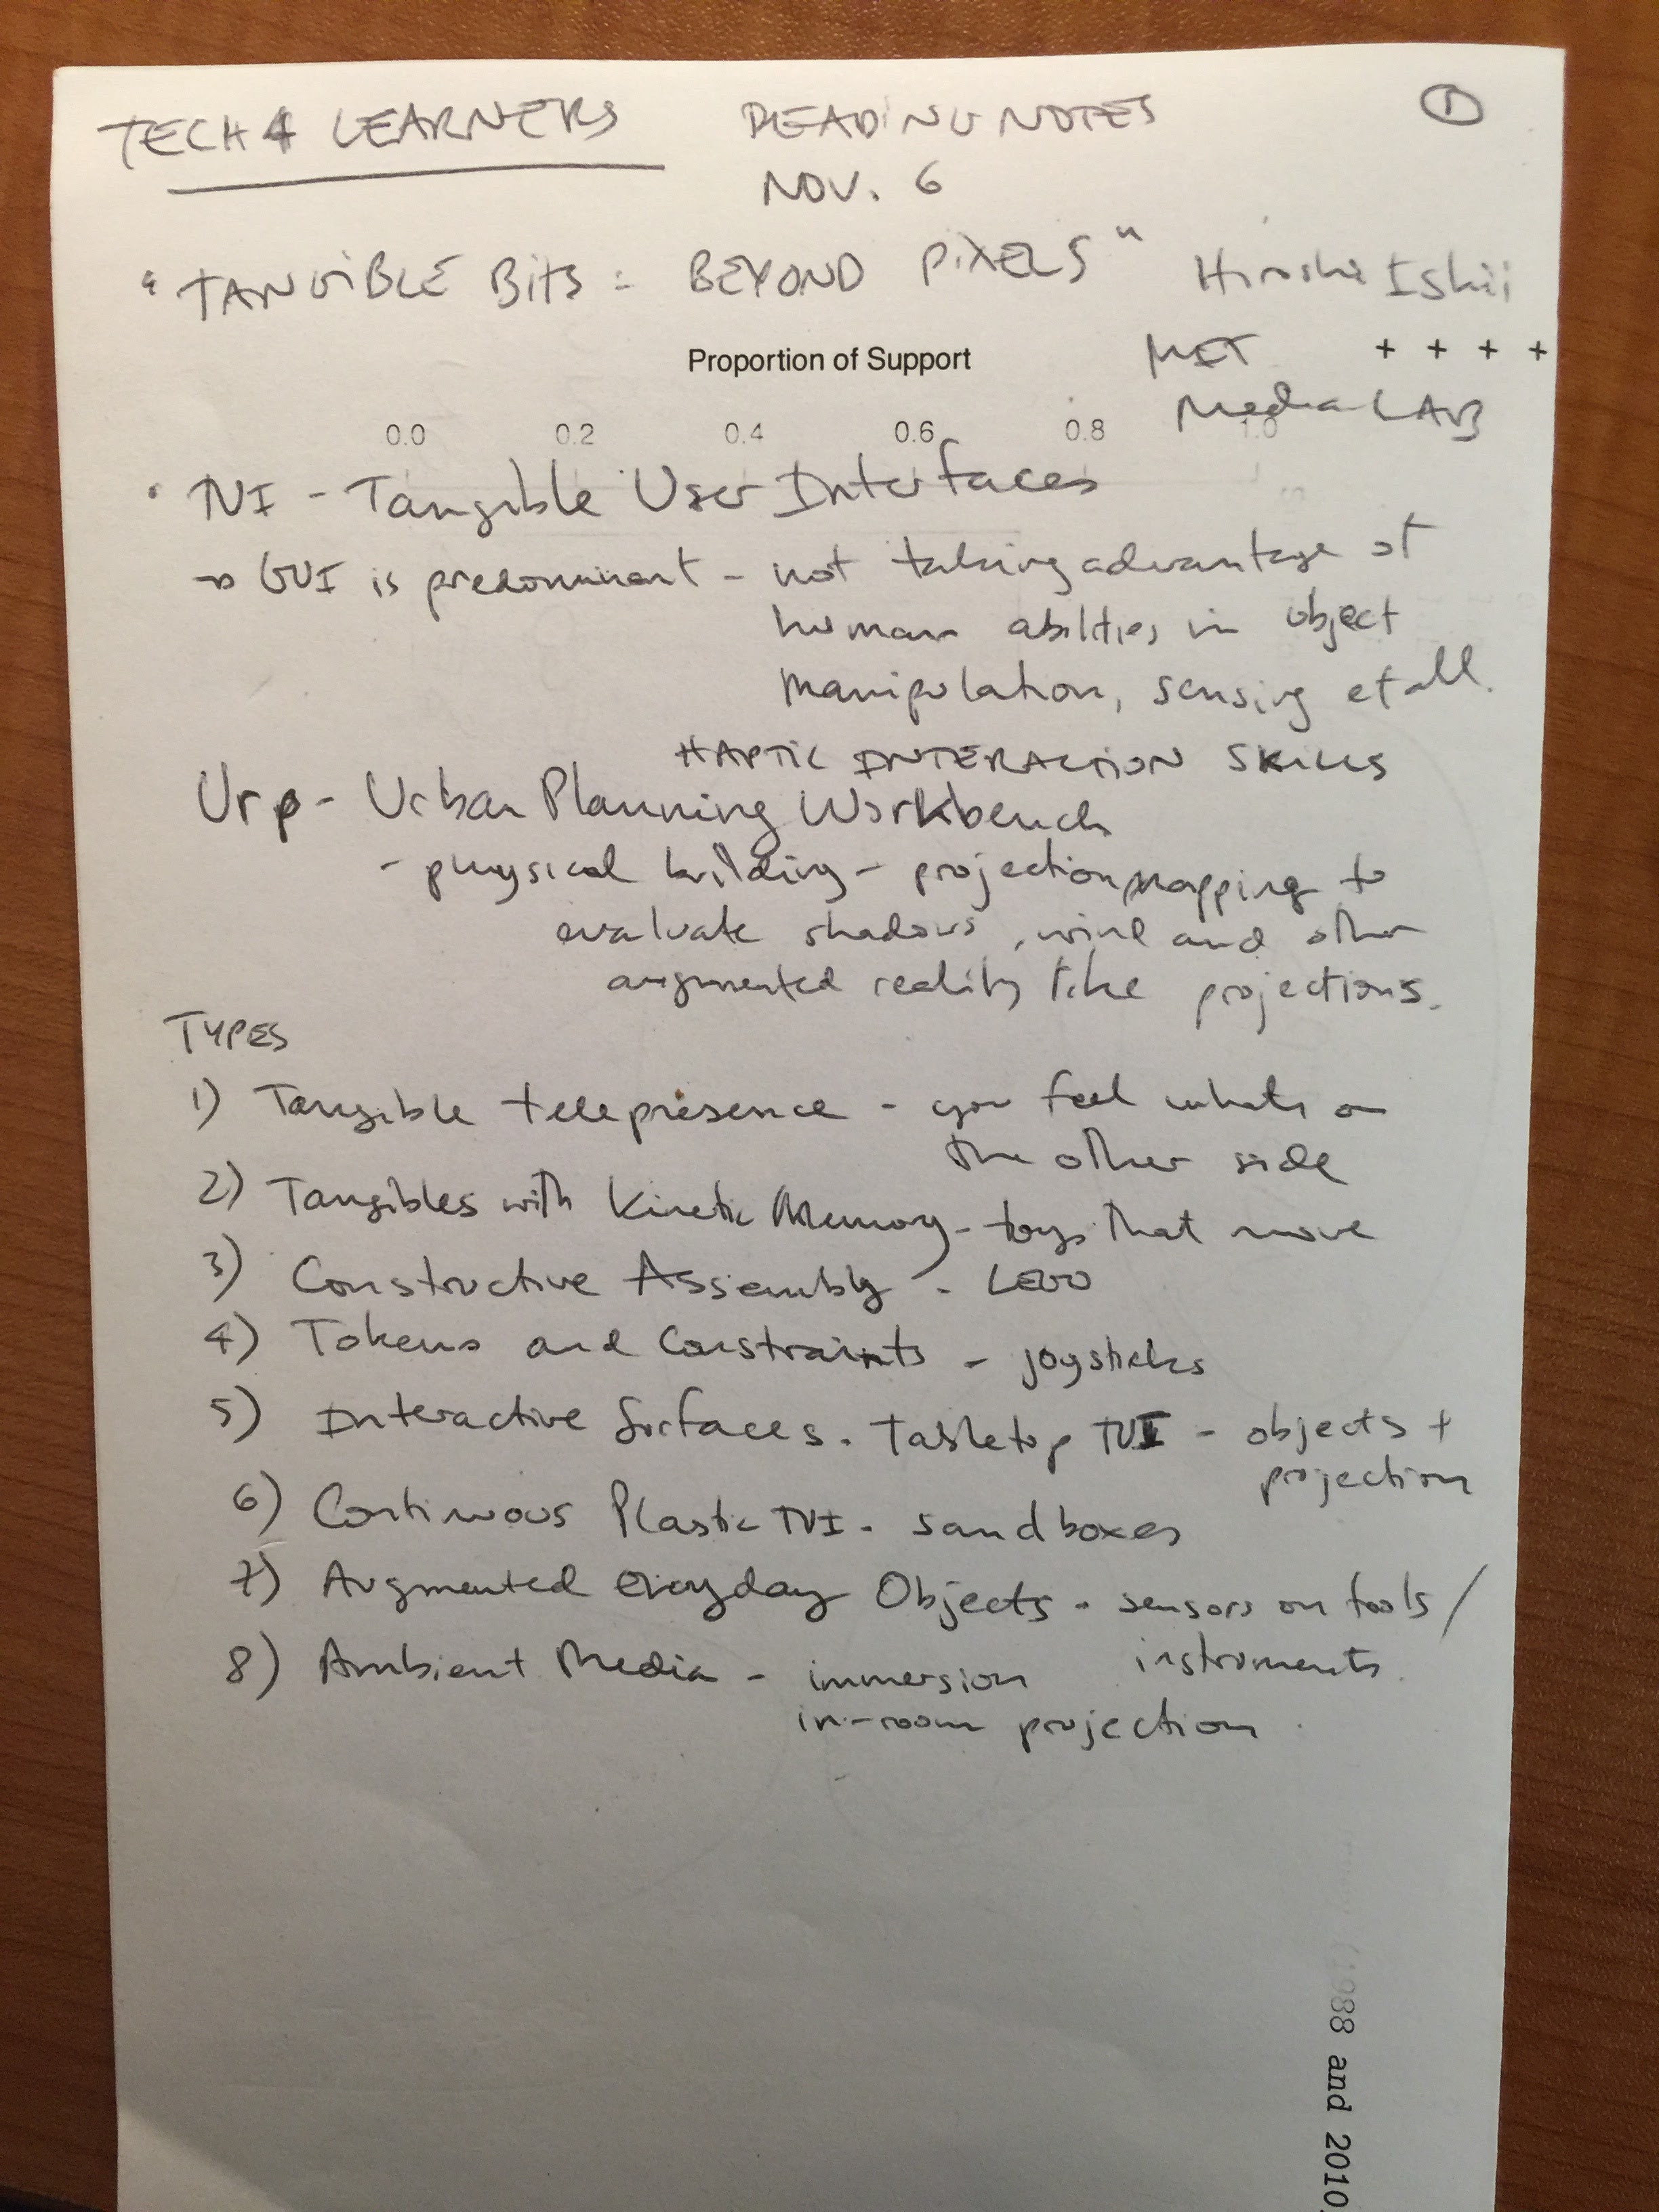 TECH 4 LEARNERS READING NOTES ①
NOV. 6
"TANGIBLE BITS: BEYOND PIXELS" Hiroshi Ishii
Proportion of Support MIT + + + +
Media LAB
0.0 0.2 0.4 0.6 0.8 1.0
• TUI - Tangible User Interfaces
→ GUI is predominant - not taking advantage of
human abilities in object
manipulation, sensing et all.
HAPTIC INTERACTION SKILLS
Urp - Urban Planning Workbench
- physical building - projection mapping to
evaluate shadows, wind and other
augmented reality like projections.
TYPES
1) Tangible telepresence - you feel whats on
the other side
2) Tangibles with Kinetic Memory - toys that move
3) Constructive Assembly - LEGO
4) Tokens and Constraints - joysticks
5) Interactive Surfaces. Tabletop TUI - objects +
projection
6) Continuous Plastic TUI - sandboxes
7) Augmented Everyday Objects - sensors on tools/
instruments.
8) Ambient Media - immersion
in-room projection
(1988 and 2010